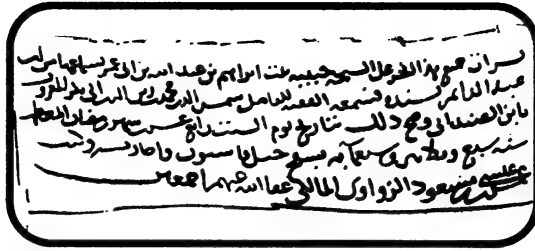 قرات جميع هذا الجزء على الشيخة حبيبة بنت ابراهيم بن عبد الله بن ابي عمر بسماعها من ابن
عبد الدائم بسنده فسمعه الفقيه الفاضل شمس الدين محمد بن الدين ابي المعروف
بابن وصح ذلك بتاريخ يوم السبت رابع عشر شهر رمضان المعظم
سنة سبع وثلاثين وسبعمائة بسفح جبل قاسيون واجازت وكتب
بن مسعود الزواوي المالكي عفا الله عنهم اجمعين